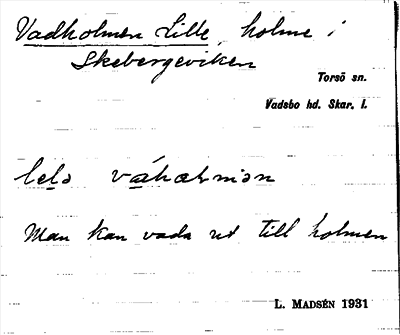 Vadholmen Lille, holme i
Skebergeviken
Torsö sn.
Vadsbo hd. Skar. l.
lelə
Man kan vada ut till holmen
L. MADSÉN 1931